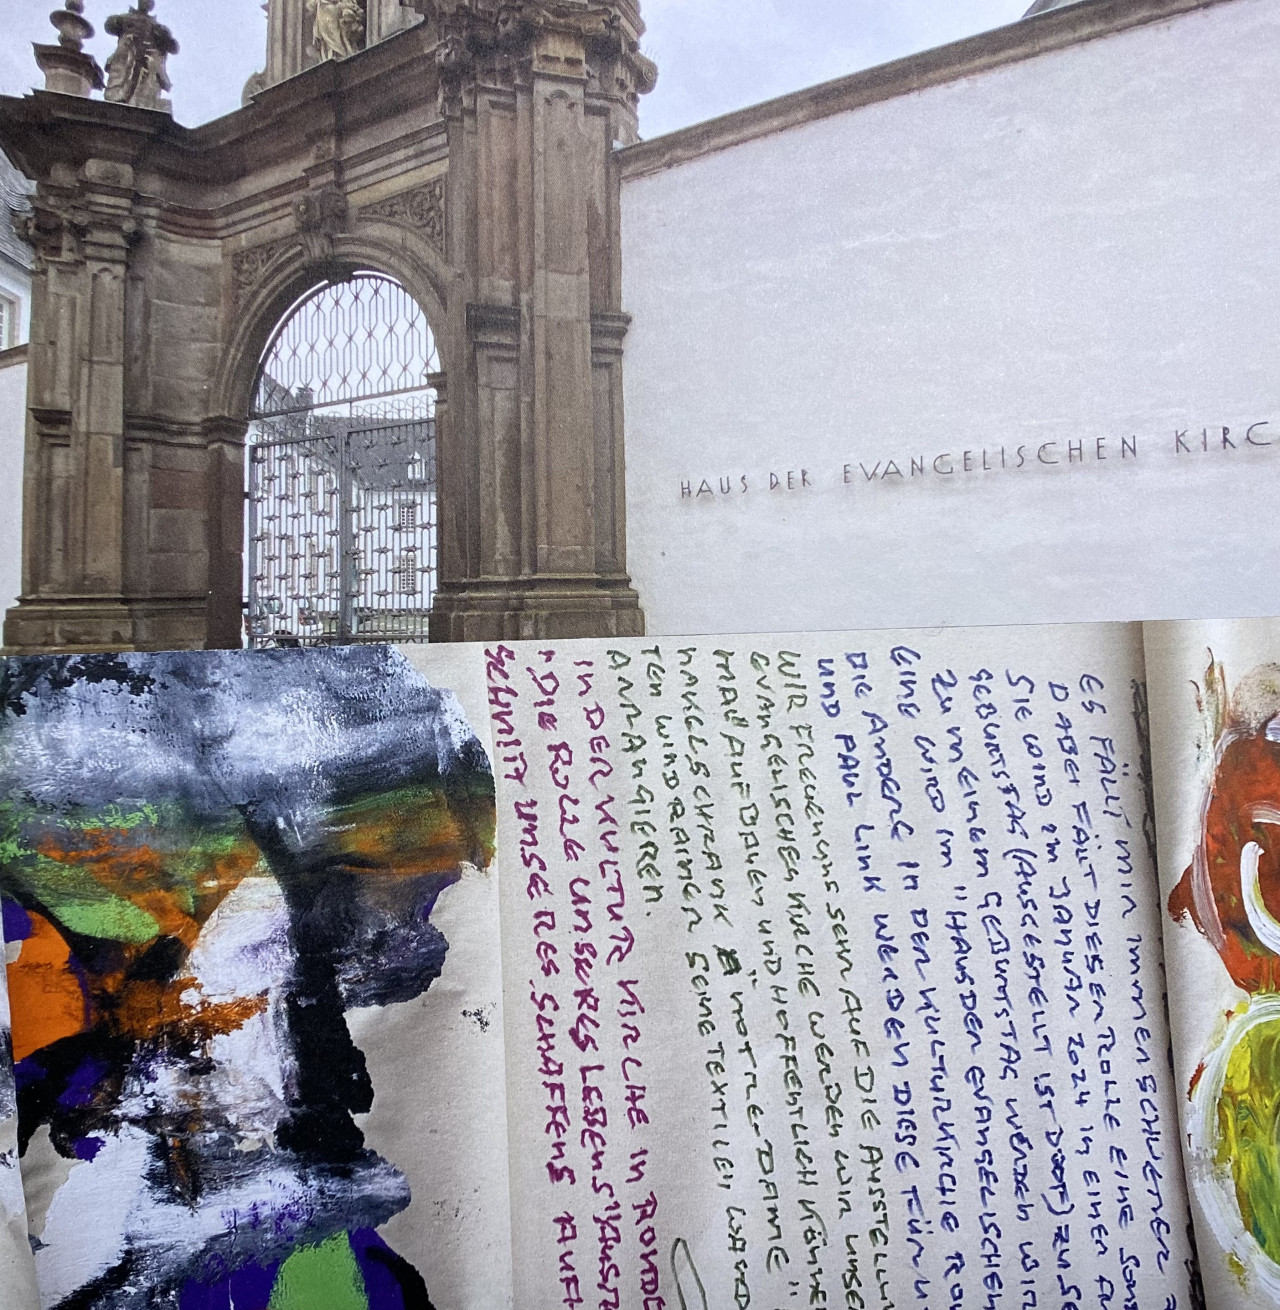 HAUS DER EVANGELISCHEN KIRC
ES FÄLLT MIR IMMER SCHWERER
DABEI FÄLT DIESER ROLLE EINE SON
SIE WIRD IM JANUAR 2024 IN EINER A
GEBURTSTAG (AUSGESTELLT IST DOOF) ZU SE
ZU MEINEM GEBURTSTAG WERDEN WIR
EINE WIRD IM "HAUS DER EVANGELISCHEN
DIE ANDERE IN DER KULTURKIRCHE RO
UND PAUL LINK WERDEN DIESE FÜR U
WIR FREUEN UNS SEHR AUF DIE AUSSTELLU
EVANGELISCHEN KIRCHE WERDEN WIR UNSE
MAL AUFBAUEN UND HOFFENTLICH KÖNNE
"NOTTRE-DAMME"
TEN SEINE TEXTILEN WAND
ARRANGIEREN.
IN DER KULTURKIRCHE IN RONDE
"DIE ROLLE UNSERES LEBENS"
SCHNITT UNSERES SCHAFFENS AUF